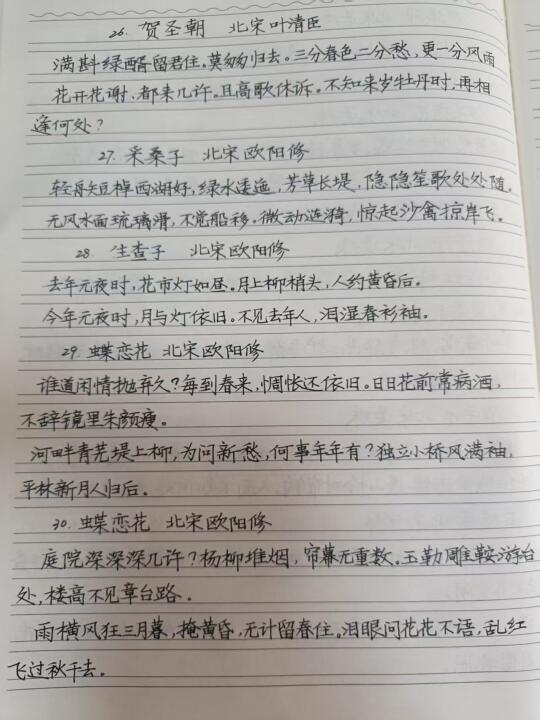 26. 贺圣朝 北宋叶清臣
满斟绿醑留君住。莫匆匆归去。三分春色二分愁，更一分风雨
花开花谢，都来几许。且高歌休诉。不知来岁牡丹时，再相
逢何处？
27. 采桑子 北宋欧阳修
轻舟短棹西湖好，绿水逶迤，芳草长堤，隐隐笙歌处处随。
无风水面琉璃滑，不觉船移。微动涟漪，惊起沙禽掠岸飞。
28. 生查子 北宋欧阳修
去年元夜时，花市灯如昼。月上柳梢头，人约黄昏后。
今年元夜时，月与灯依旧。不见去年人，泪湿春衫袖。
29. 蝶恋花 北宋欧阳修
谁道闲情抛弃久？每到春来，惆怅还依旧。日日花前常病酒，
不辞镜里朱颜瘦。
河畔青芜堤上柳，为问新愁，何事年年有？独立小桥风满袖，
平林新月人归后。
30. 蝶恋花 北宋欧阳修
庭院深深深几许？杨柳堆烟，帘幕无重数。玉勒雕鞍游台
处，楼高不见章台路。
雨横风狂三月暮，掩黄昏，无计留春住。泪眼问花花不语，乱红
飞过秋千去。